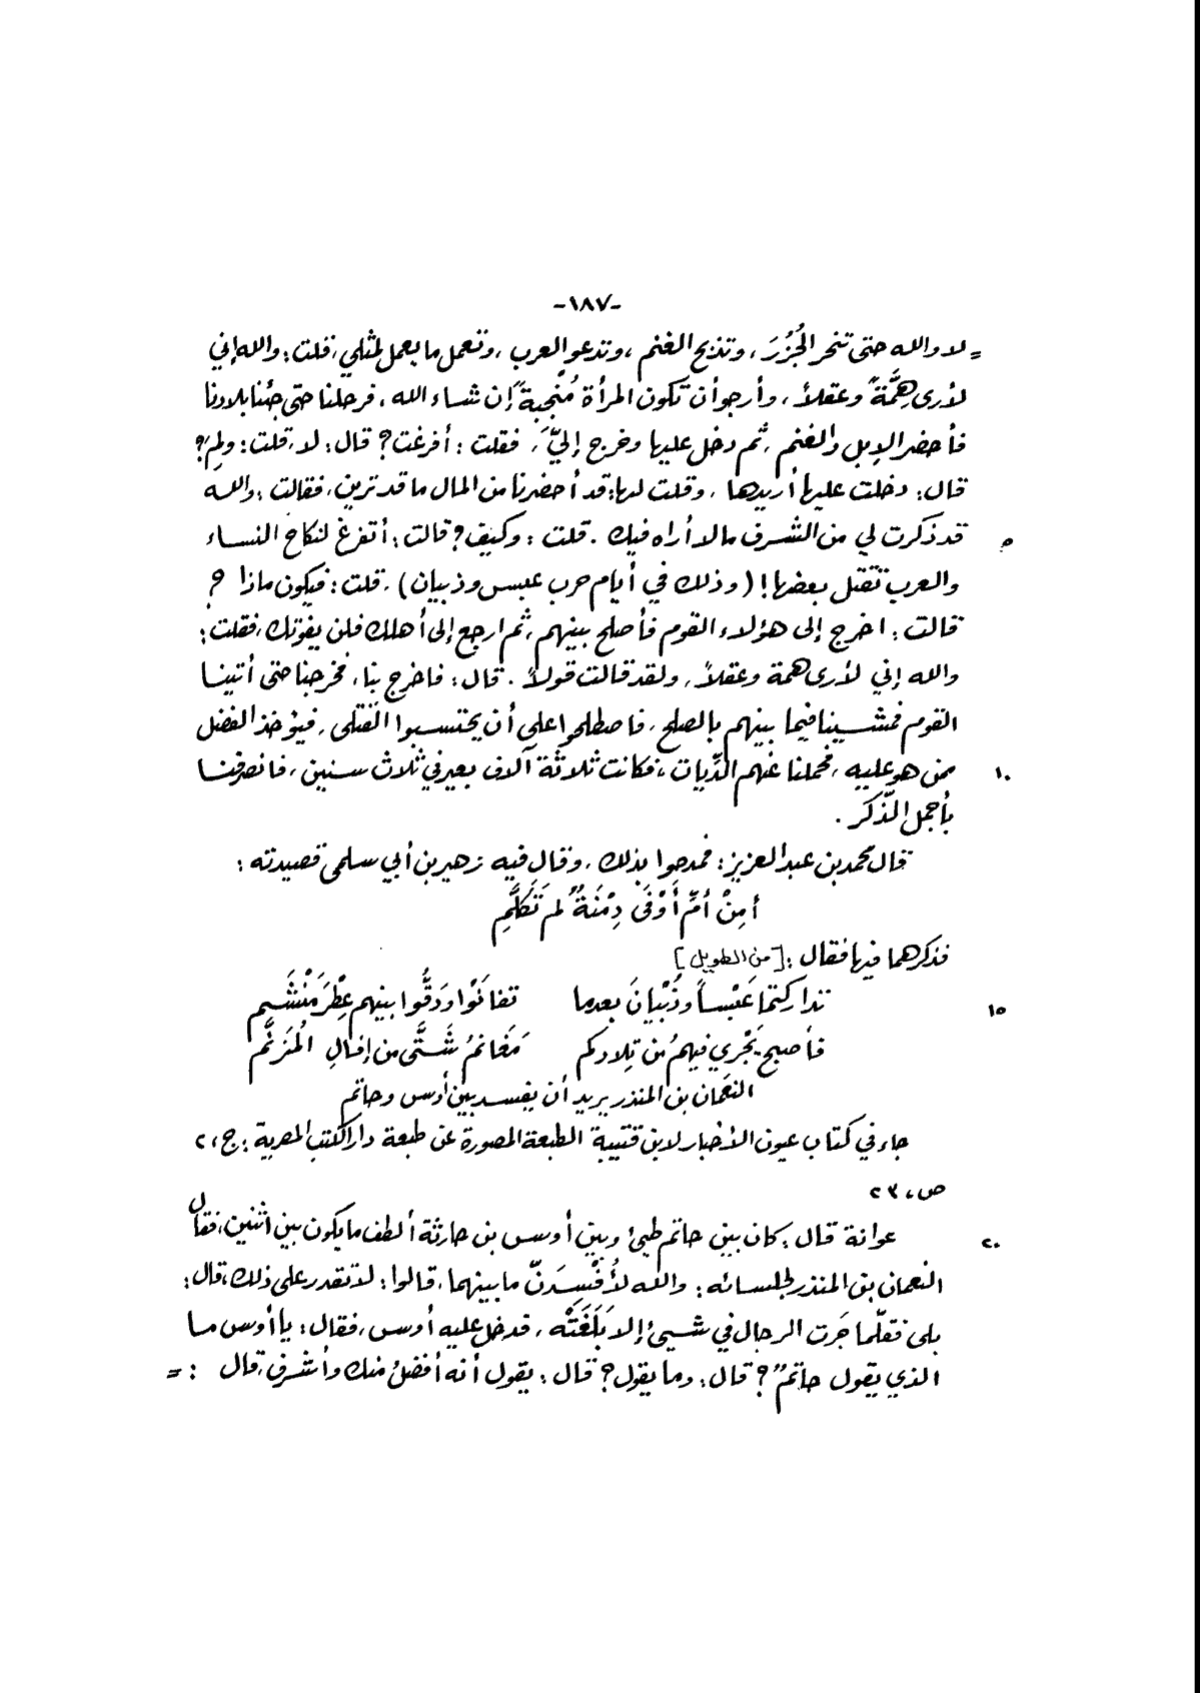 -١٨٧-
= لا والله حتى تنحر الجُزُرَ، وتذبح الغنم، وتدعو العرب، وتعمل ما يعمل لمثلي، قلت: والله إني
لأرى هِمَّةً وعقلاً، وأرجو أن تكون المرأة مُنْجِبةً إن شاء الله، فرحلنا حتى جئنا بلادنا
فأحضر الإبل والغنم، ثم دخل عليها وخرج إليّ، فقلت: أفرغت؟ قال: لا، قلت: ولِمَ؟
قال: دخلت عليها أريدها، وقلت لها: قد أحضرنا من المال ما قد ترين، فقالت: والله
٥ قد ذكرت لي من الشرف مالا أراه فيك. قلت: وكيف؟ قالت: أتفرغ لنكاح النساء
والعرب تقتل بعضها! (وذلك في أيام حرب عبس وذبيان)، قلت: فيكون ماذا؟
قالت: اخرج إلى هؤلاء القوم فأصلح بينهم، ثم ارجع إلى أهلك فلن يفوتك، فقلت:
والله إني لأرى همة وعقلاً، ولقد قالت قولاً. قال: فاخرج بنا، فخرجنا حتى أتينا
القوم فمشينا فيما بينهم بالصلح، فاصطلحوا على أن يحتسبوا القتلى، فيؤخذ الفضل
١٠ ممن هو عليه، فحملنا عنهم الدِّيات، فكانت ثلاثة آلاف بعير في ثلاث سنين، فانصرفنا
بأجمل الذّكر.
قال محمد بن عبد العزيز: فمدحوا بذلك، وقال فيه زهير بن أبي سلمى قصيدته:
أمِنْ أُمِّ أَوْفَى دِمْنَةٌ لم تَكَلَّمِ
فذكرهما فيها فقال: [من الطويل]
١٥ تداركتما عَبْساً وذُبْيانَ بعدما تفانَوْا ودَقُّوا بينهم عِطْرَ مَنْشَمِ
فأصبح يَجْري فيهمُ من تِلادكم مَغانمُ شَتَّى من إفالِ المُزَنَّمِ
النعمان بن المنذر يريد أن يفسد بين أوس وحاتم
جاء في كتاب عيون الأخبار لابن قتيبة الطبعة المصورة عن طبعة دار الكتب المصرية: ج،٢
ص،٢٣
٢٠ عوانة قال: كان بين حاتم طيئ وبين أوس بن حارثة ألطف ما يكون بين اثنين، فقال
النعمان بن المنذر لجلسائه: والله لأُفْسِدَنّ ما بينهما، قالوا: لا تقدر على ذلك، قال:
بلى فقلّما جَرت الرجال في شيئ إلا بَلَغَتْه، فدخل عليه أوس، فقال: يا أوس ما
الذي يقول حاتمٌ؟ قال: وما يقول؟ قال: يقول أنه أفضلُ منك وأشرف، قال: =